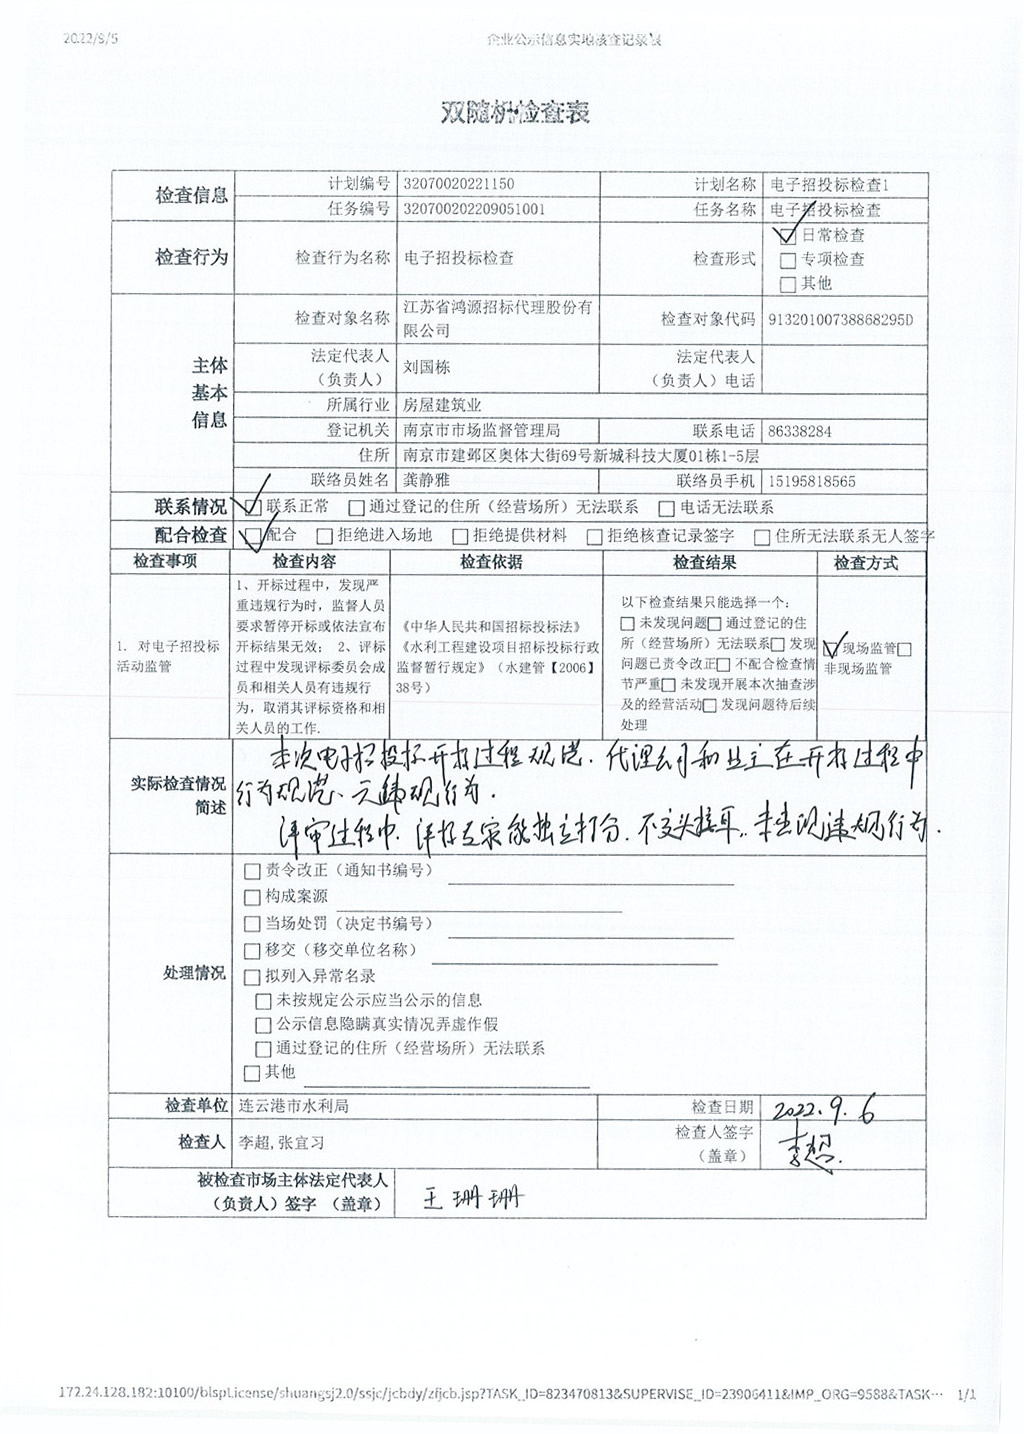 2022/9/5 企业公示信息实地核查记录表
双随机检查表
检查信息 计划编号 32070020221150 计划名称 电子招投标检查1
任务编号 320700202209051001 任务名称 电子招投标检查
检查行为 检查行为名称 电子招投标检查 检查形式 ☑日常检查
□专项检查
□其他
主体基本信息 检查对象名称 江苏省鸿源招标代理股份有
限公司 检查对象代码 91320100738868295D
法定代表人
(负责人) 刘国栋 法定代表人
(负责人)电话
所属行业 房屋建筑业
登记机关 南京市市场监督管理局 联系电话 86338284
住所 南京市建邺区奥体大街69号新城科技大厦01栋1-5层
联络员姓名 龚静雅 联络员手机 15195818565
联系情况 ☑联系正常 □通过登记的住所(经营场所)无法联系 □电话无法联系
配合检查 ☑配合 □拒绝进入场地 □拒绝提供材料 □拒绝核查记录签字 □住所无法联系无人签字
检查事项 检查内容 检查依据 检查结果 检查方式
1. 对电子招投标
活动监管
1、开标过程中，发现严
重违规行为时，监督人员
要求暂停开标或依法宣布
开标结果无效； 2、评标
过程中发现评标委员会成
员和相关人员有违规行
为，取消其评标资格和相
关人员的工作.
《中华人民共和国招标投标法》
《水利工程建设项目招标投标行政
监督暂行规定》（水建管【2006】
38号）
以下检查结果只能选择一个：
□未发现问题□通过登记的住
所（经营场所）无法联系□发现
问题已责令改正□不配合检查情
节严重□未发现开展本次抽查涉
及的经营活动□发现问题待后续
处理
☑现场监管□
非现场监管
实际检查情况
简述
本次电子招投标开标过程规范、代理公司和业主在开标过程中
行为规范、无违规行为.
评审过程中.评标专家能独立打分.不交头接耳.未查现违规行为.
处理情况
□责令改正（通知书编号）
□构成案源
□当场处罚（决定书编号）
□移交（移交单位名称）
□拟列入异常名录
□未按规定公示应当公示的信息
□公示信息隐瞒真实情况弄虚作假
□通过登记的住所（经营场所）无法联系
□其他
检查单位 连云港市水利局 检查日期 2022.9.6
检查人 李超,张宜习 检查人签字
（盖章） 李超.
被检查市场主体法定代表人
（负责人）签字 （盖章） 王珊珊
172.24.128.182:10100/blspLicense/shuangsj2.0/ssjc/jcbdy/zfjcb.jsp?TASK_ID=823470813&SUPERVISE_ID=23906411&IMP_ORG=9588&TASK… 1/1